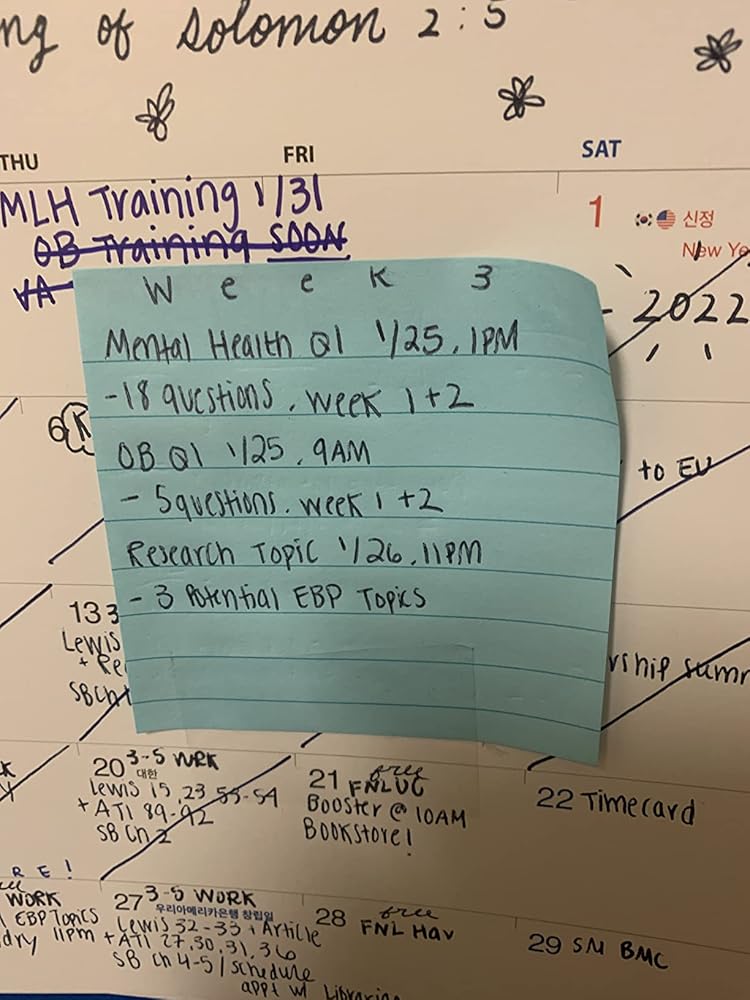 ng of Solomon 2:5
THU FRI SAT
MLH Training 1/31
OB Training SOON
VA
1 신정
New Ye
2022
Week 3
Mental Health Q1 1/25, 1PM
-18 questions, week 1+2
OB Q1 1/25, 9AM
- 5 questions. week 1 +2
Research Topic 1/26, 11PM
- 3 Potential EBP Topics
6
to EU
13 3
Lewis
+ Re
SB Ch 1
rship summ
20 3-5 WORK
대한
Lewis 15, 23 53-54
+ ATI 89-92
SB Ch 2
21 free
FNL UC
Booster @ 10AM
BOOKSTORE!
22 Timecard
RE!
WORK
EBP Topics
dry 11pm
27 3-5 WORK
우리아메리카은행 창립일
Lewis 32-33 + Article
+ ATI 27,30,31,36
SB Ch 4-5 / schedule
appt w/ Librarian
28 free
FNL Hav
29 SM BMC